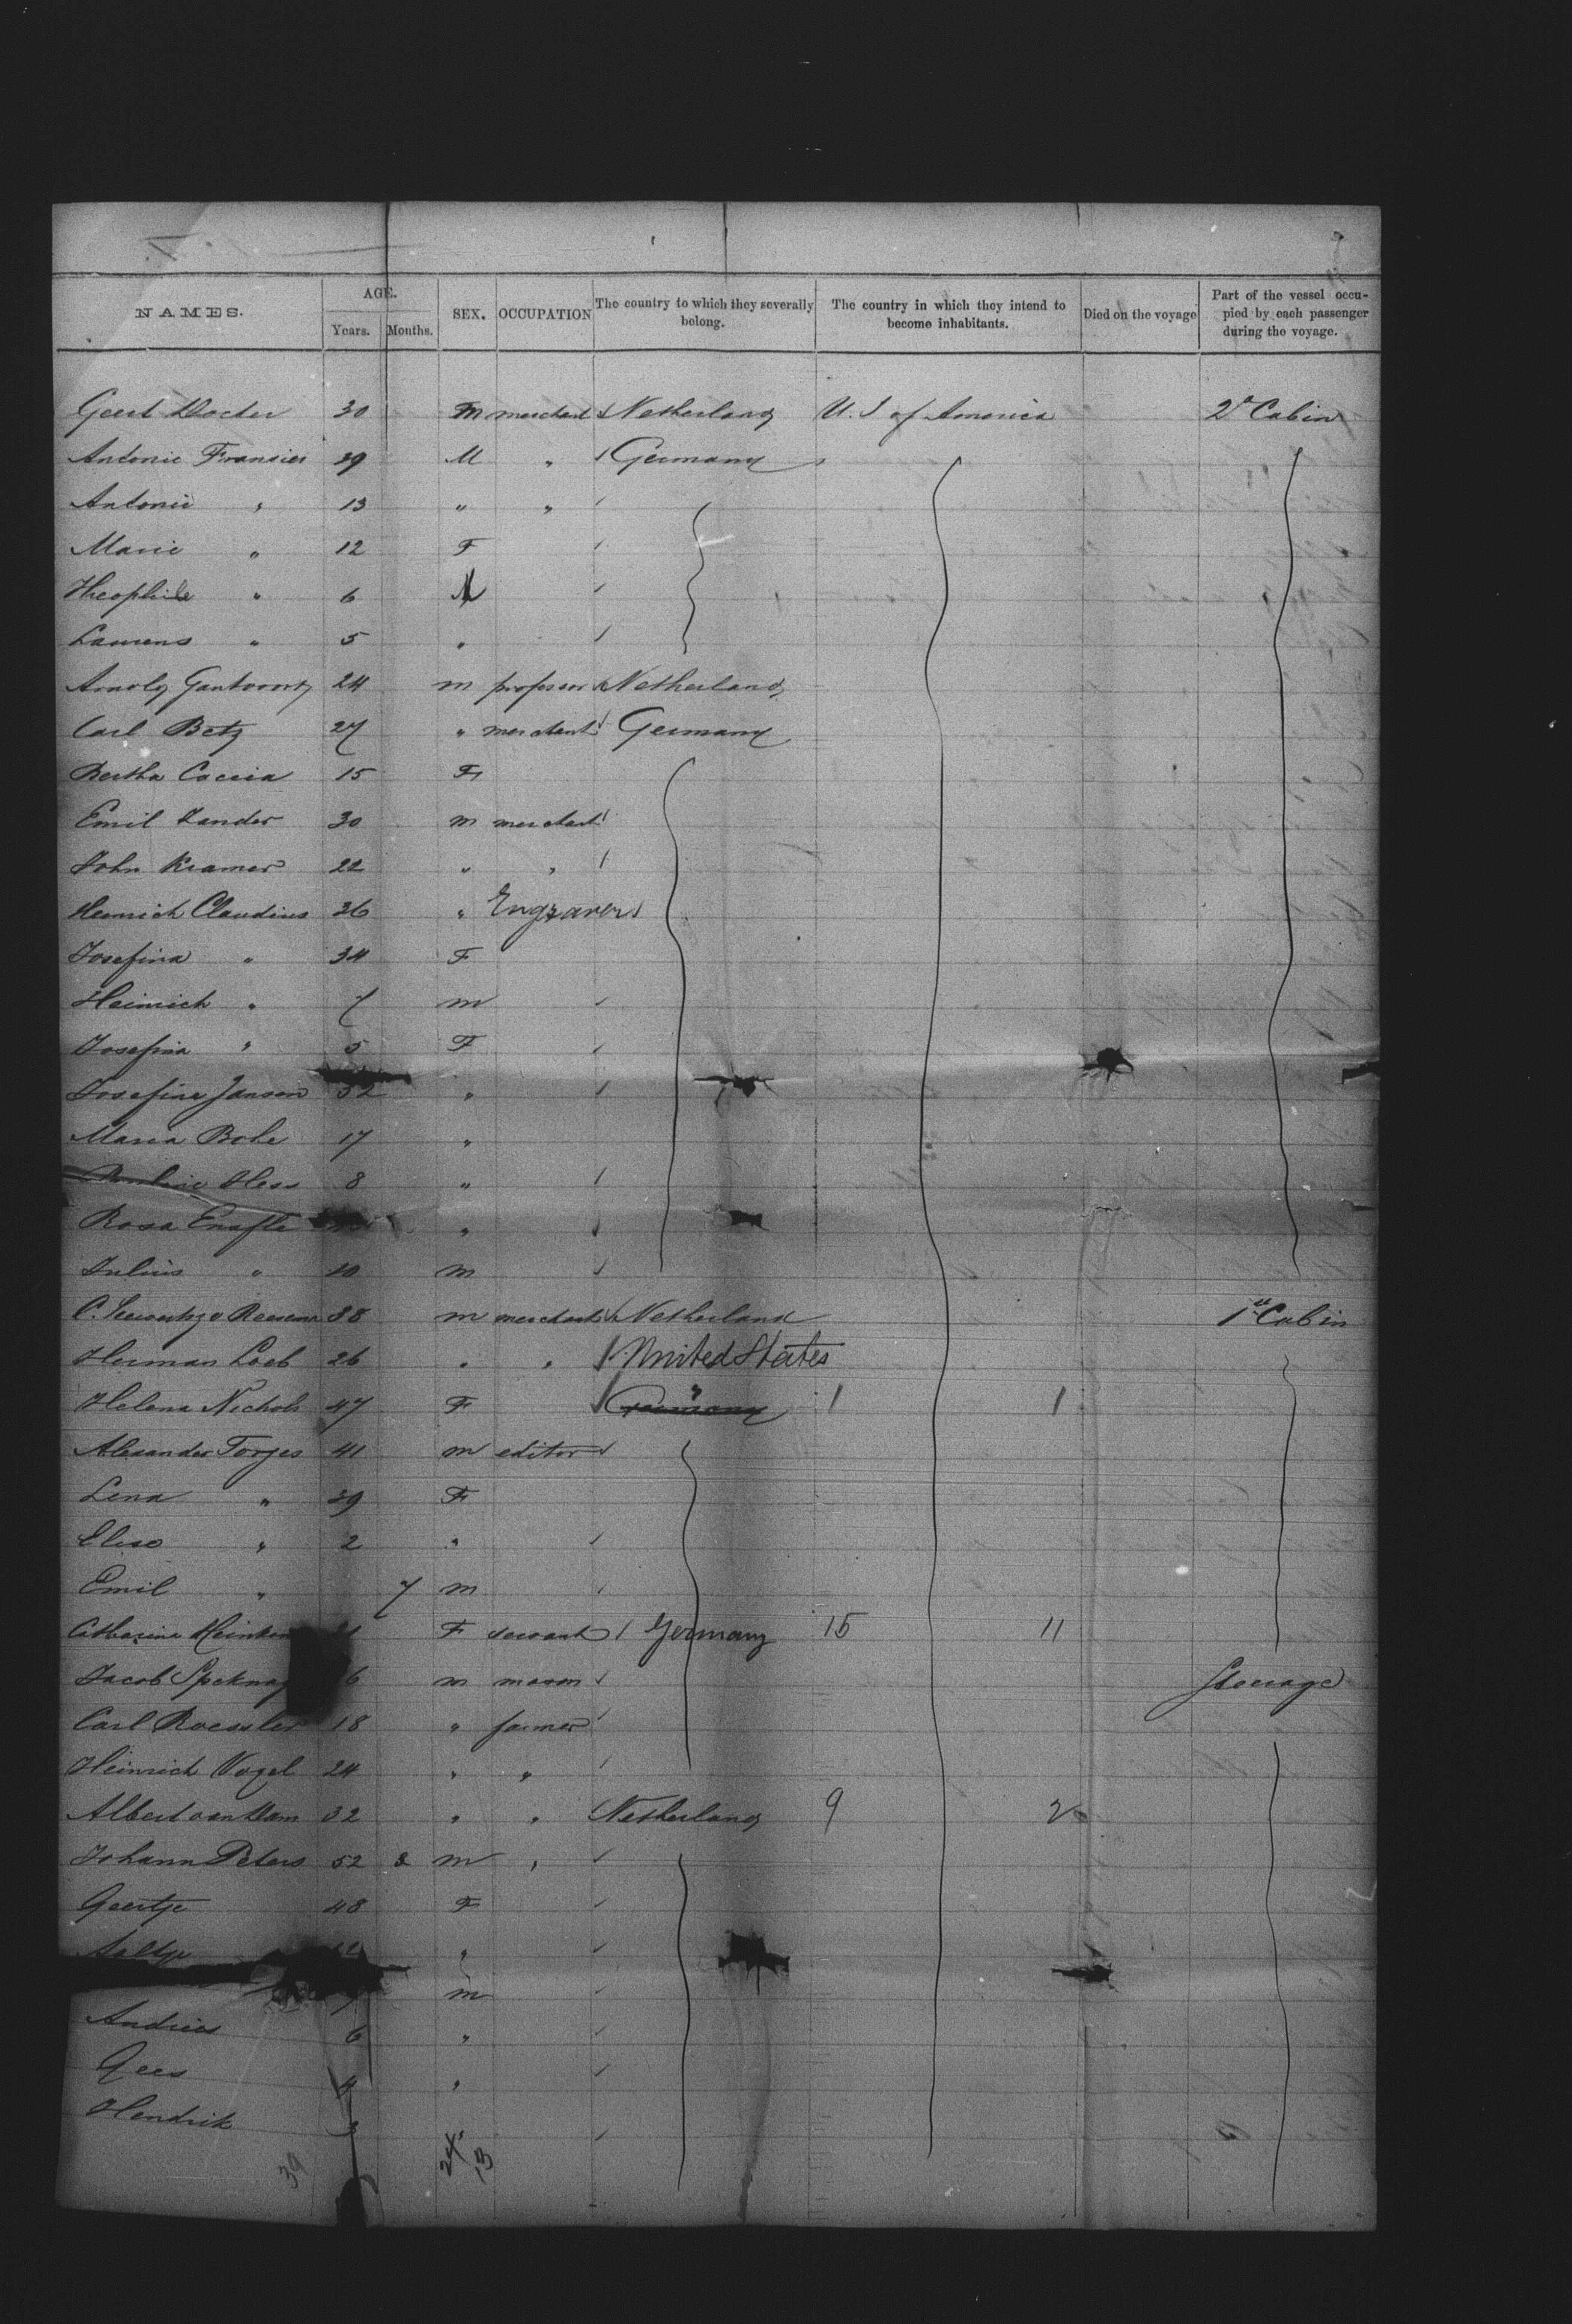 NAMES. AGE. Years. Months. SEX. OCCUPATION The country to which they severally belong. The country in which they intend to become inhabitants. Died on the voyage Part of the vessel occupied by each passenger during the voyage.
Geert Docter 30 m merchant Netherland U. S of America 2d Cabin
Antonie Fransies 39 M " Germany
Antonie " 13 " "
Marie " 12 F
Theophile " 6 M
Laurens " 5 "
Arnold Gantvoort 24 m professor Netherland
Carl Betz 27 " merchant Germany
Bertha Caccia 15 F
Emil Zander 30 m merchant
John Kramer 22 " "
Heinrich Claudius 36 " Engraver
Josefina " 34 F
Heinrich " 7 m
Josefina " 5 F
Josefine Janson 32 "
Maria Bohe 17 "
Hess 8 "
Rosa "
Julius " 10 m
C. 38 m merchant Netherland 1st Cabin
Herman Loeb 26 " " United States
Helena Nichols 47 F " Germany 1 1
Alexander Torges 41 m editor
Lena " 39 F
Elise " 2 "
Emil " 7 m
Catharine F servant Germany 15 11
Jacob 6 m mason Steerage
Carl Roessler 18 " farmer
Heinrich Vogel 24 " "
Albert van Ham 32 " " Netherland 9 2
Johann Peters 52 m "
Geertje 48 F
Aaltje 12 "
7 m
Andries 6 "
Gees 4 "
Hendrik 3
39 24 13